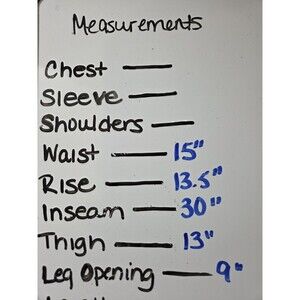 Measurements
Chest —
Sleeve —
Shoulders —
Waist — 15"
Rise — 13.5"
Inseam — 30"
Thigh — 13"
Leg Opening — 9"